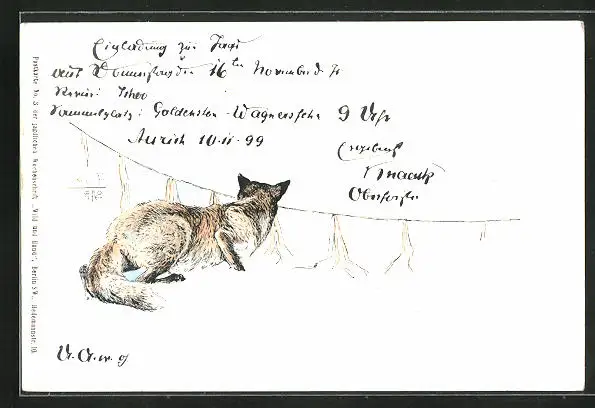 Einladung zur Jagd
auf Donnerstag den 16ten November d. J.
Revier: Ihlow
Sammelplatz: Goldenstern - Wagnersfehn 9 Uhr
Aurich 10.11.99
Ergebenst
Oberförster
U. A. w. g
Postkarte No. 3 der jagdlichen Wochenschrift „Wild und Hund“, Berlin SW., Hedemannstr. 10.